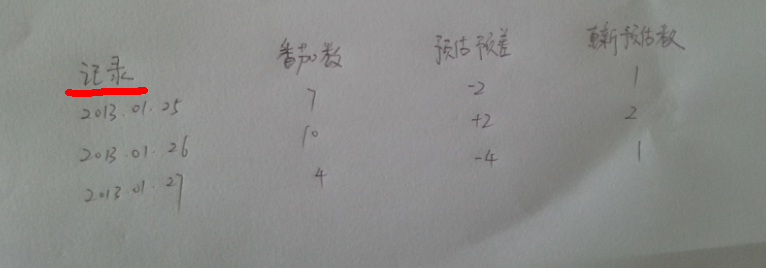 记录 番茄数 预估预差 更新预估数
2013.01.25 7 -2 1
2013.01.26 10 +2 2
2013.01.27 4 -4 1